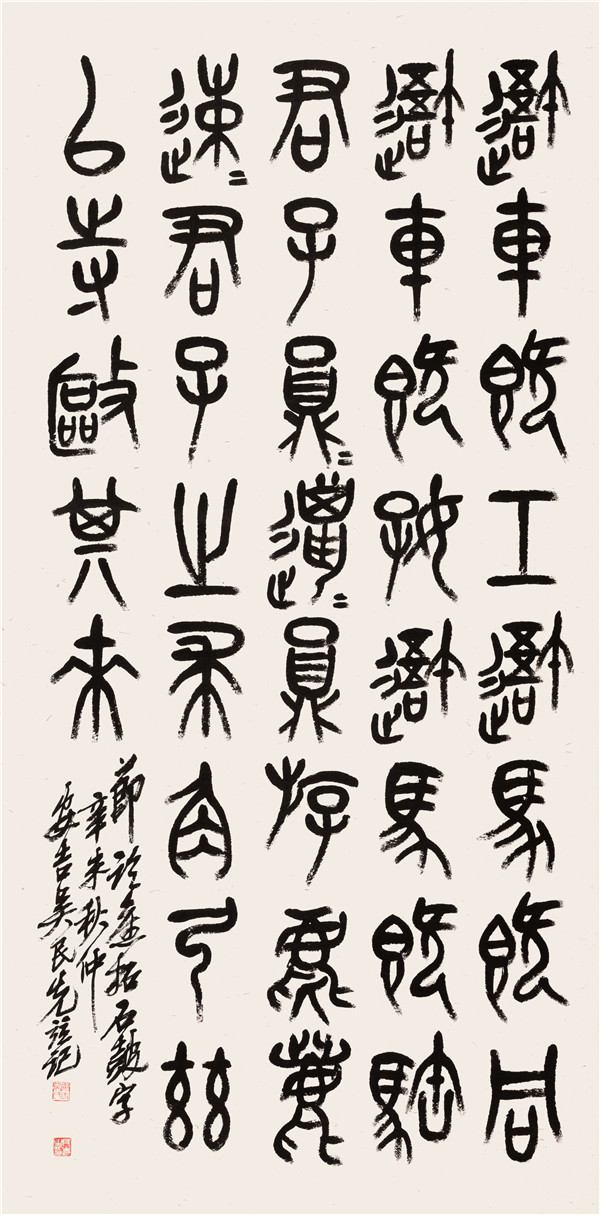 避車既工避馬既同
避車既好避馬既𩣡
君子員=邋=員斿麀鹿
速=君子之求角弓兹
以寺敺其來
節臨舊拓石鼓字
辛未秋仲
安吉吳民先並記